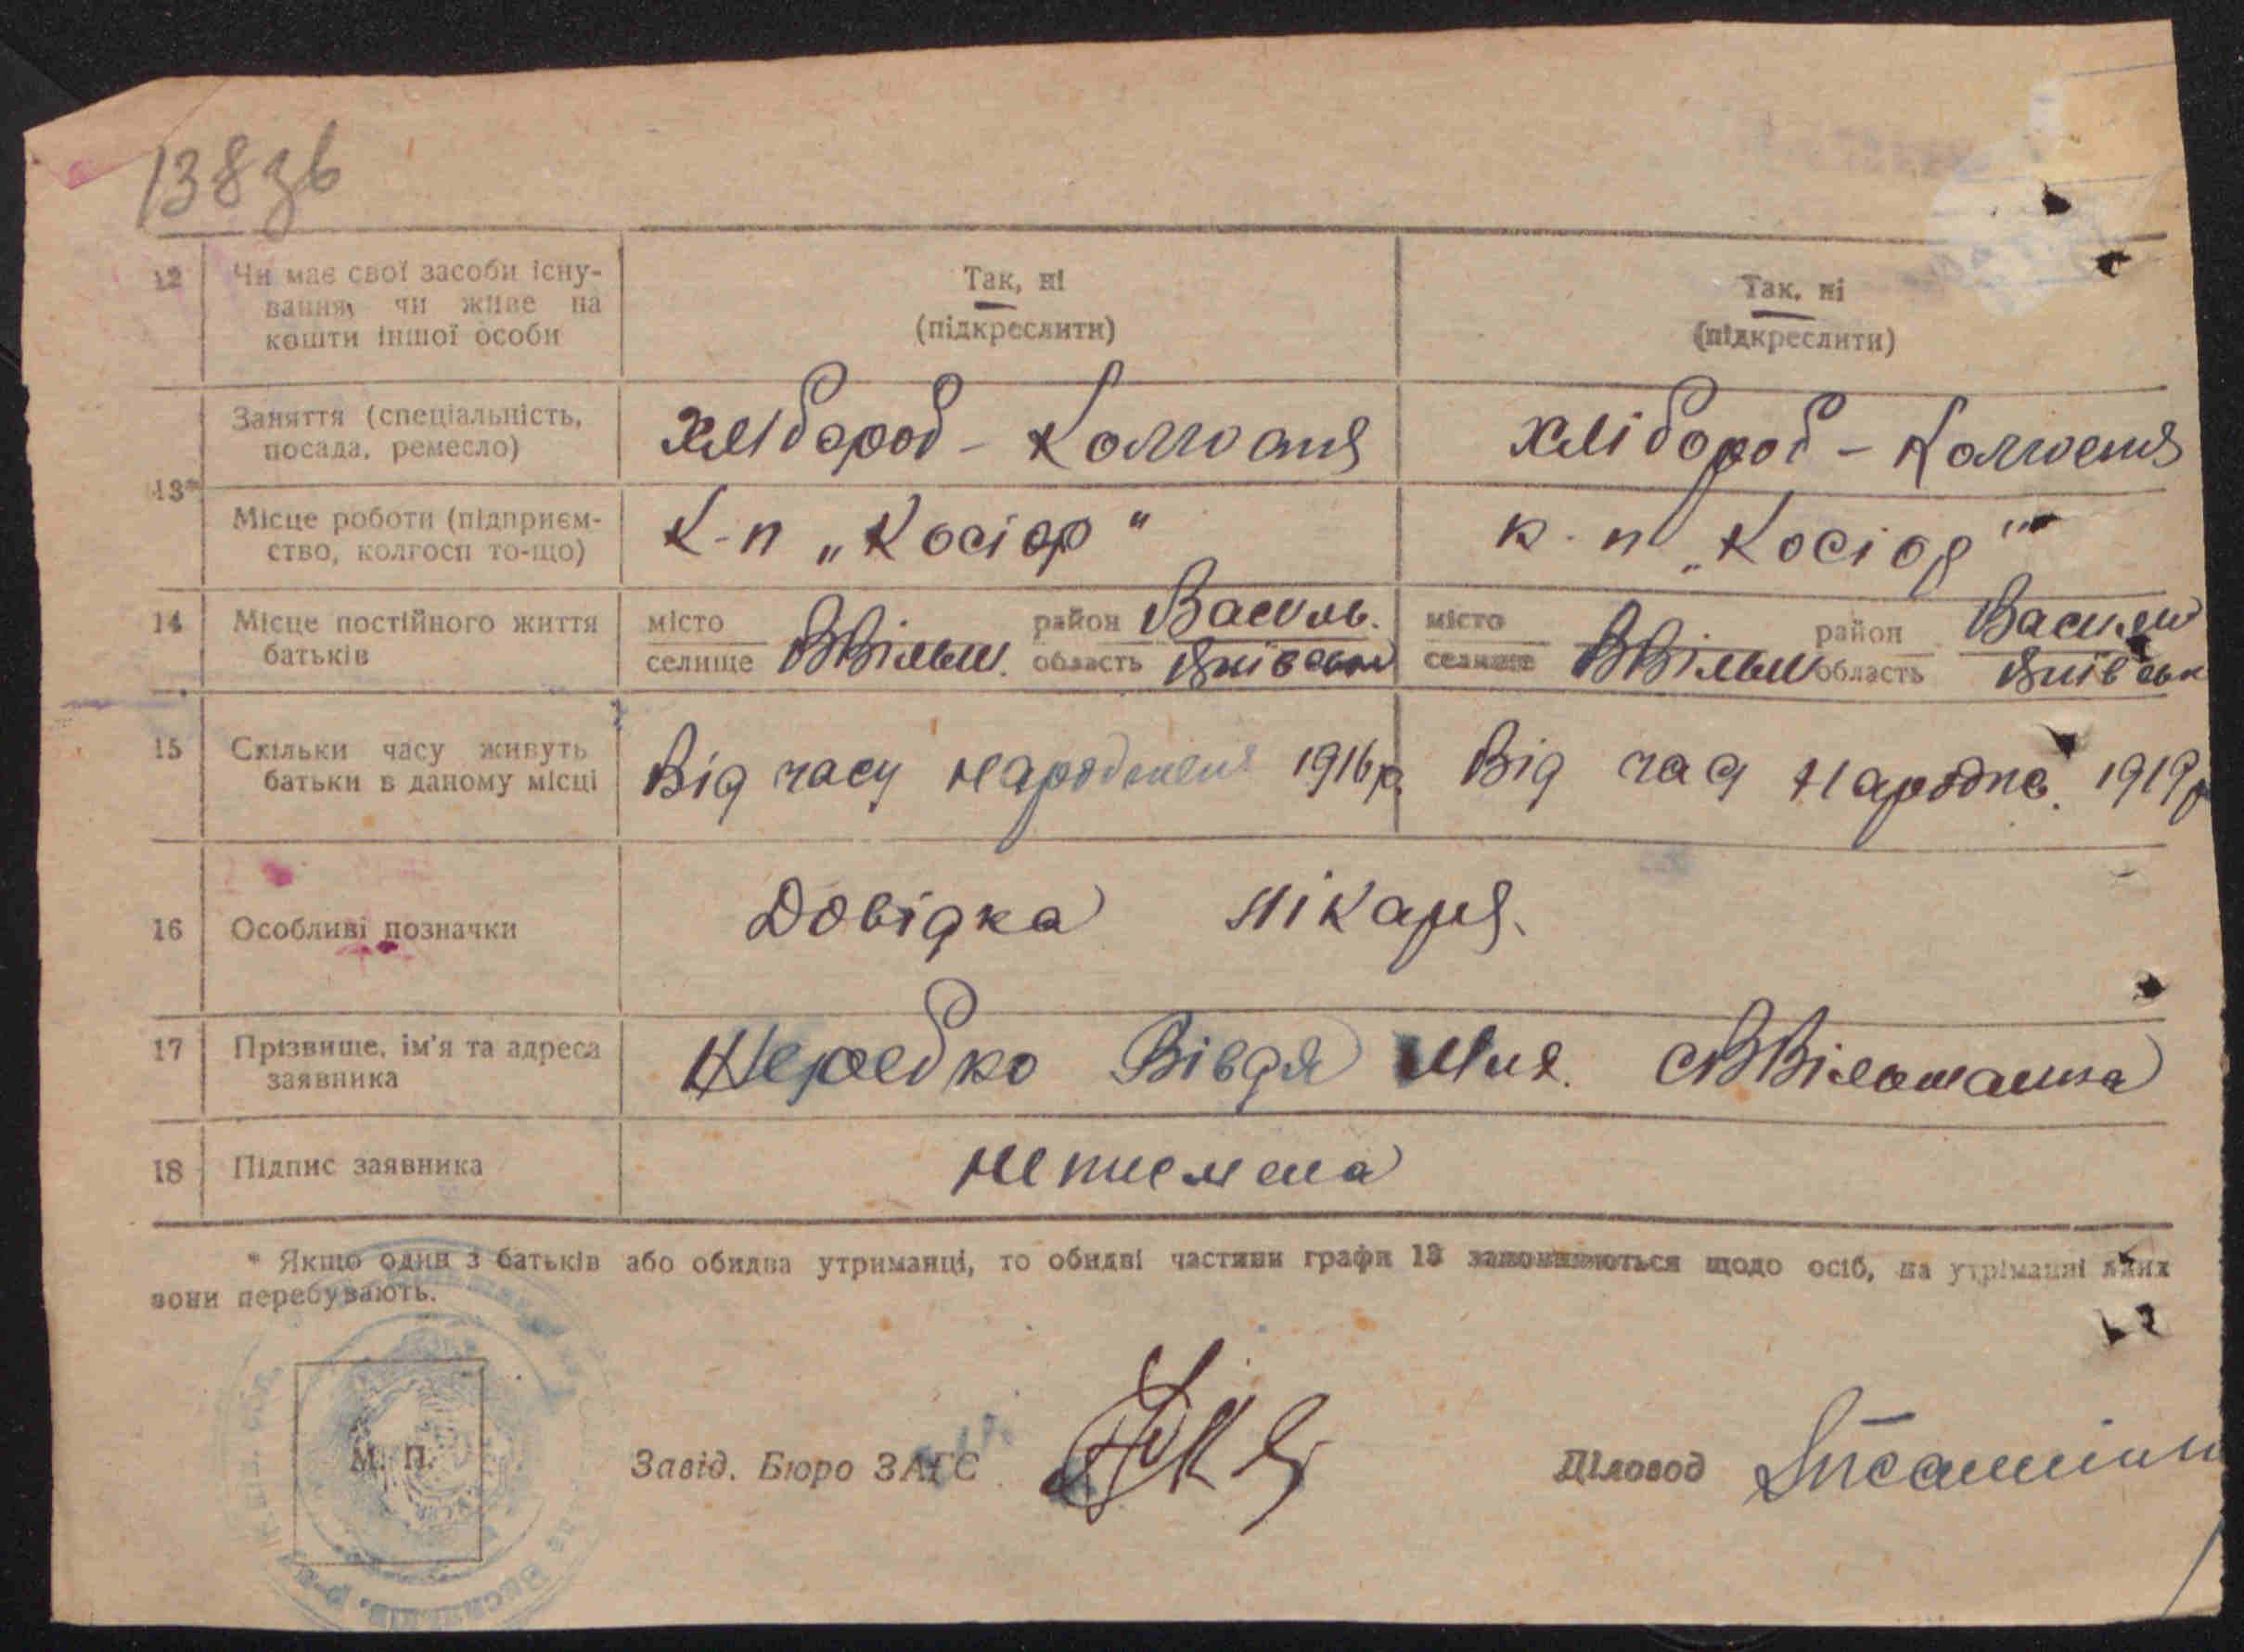 138зв
12 Чи має свої засоби існу- Так, ні Так, ні
вання, чи живе на (підкреслити) (підкреслити)
кошти іншої особи
Заняття (спеціальність, Хлібороб - Колгоспн Хлібороб - Колгоспн
посада, ремесло)
13*
Місце роботи (підприєм- К-п „Косіор" к-п „Косіор"
ство, колгосп то-що)
14 Місце постійного життя місто район Василь. місто район Васильк
батьків селище ВВільш. область Київськ селище ВВільш область Київськ
15 Скільки часу живуть Від часу народження 1916р. Від час народже. 1919р
батьки в даному місці
16 Особливі позначки Довідка лікаря.
17 Прізвище, ім'я та адреса Вівдя
заявника
18 Підпис заявника неписмена
* Якщо один з батьків або обидва утриманці, то обидві частини графи 13 заповнюються щодо осіб, на утріманні яких
вони перебувають.
М. П. Завід. Бюро ЗАГС Діловод